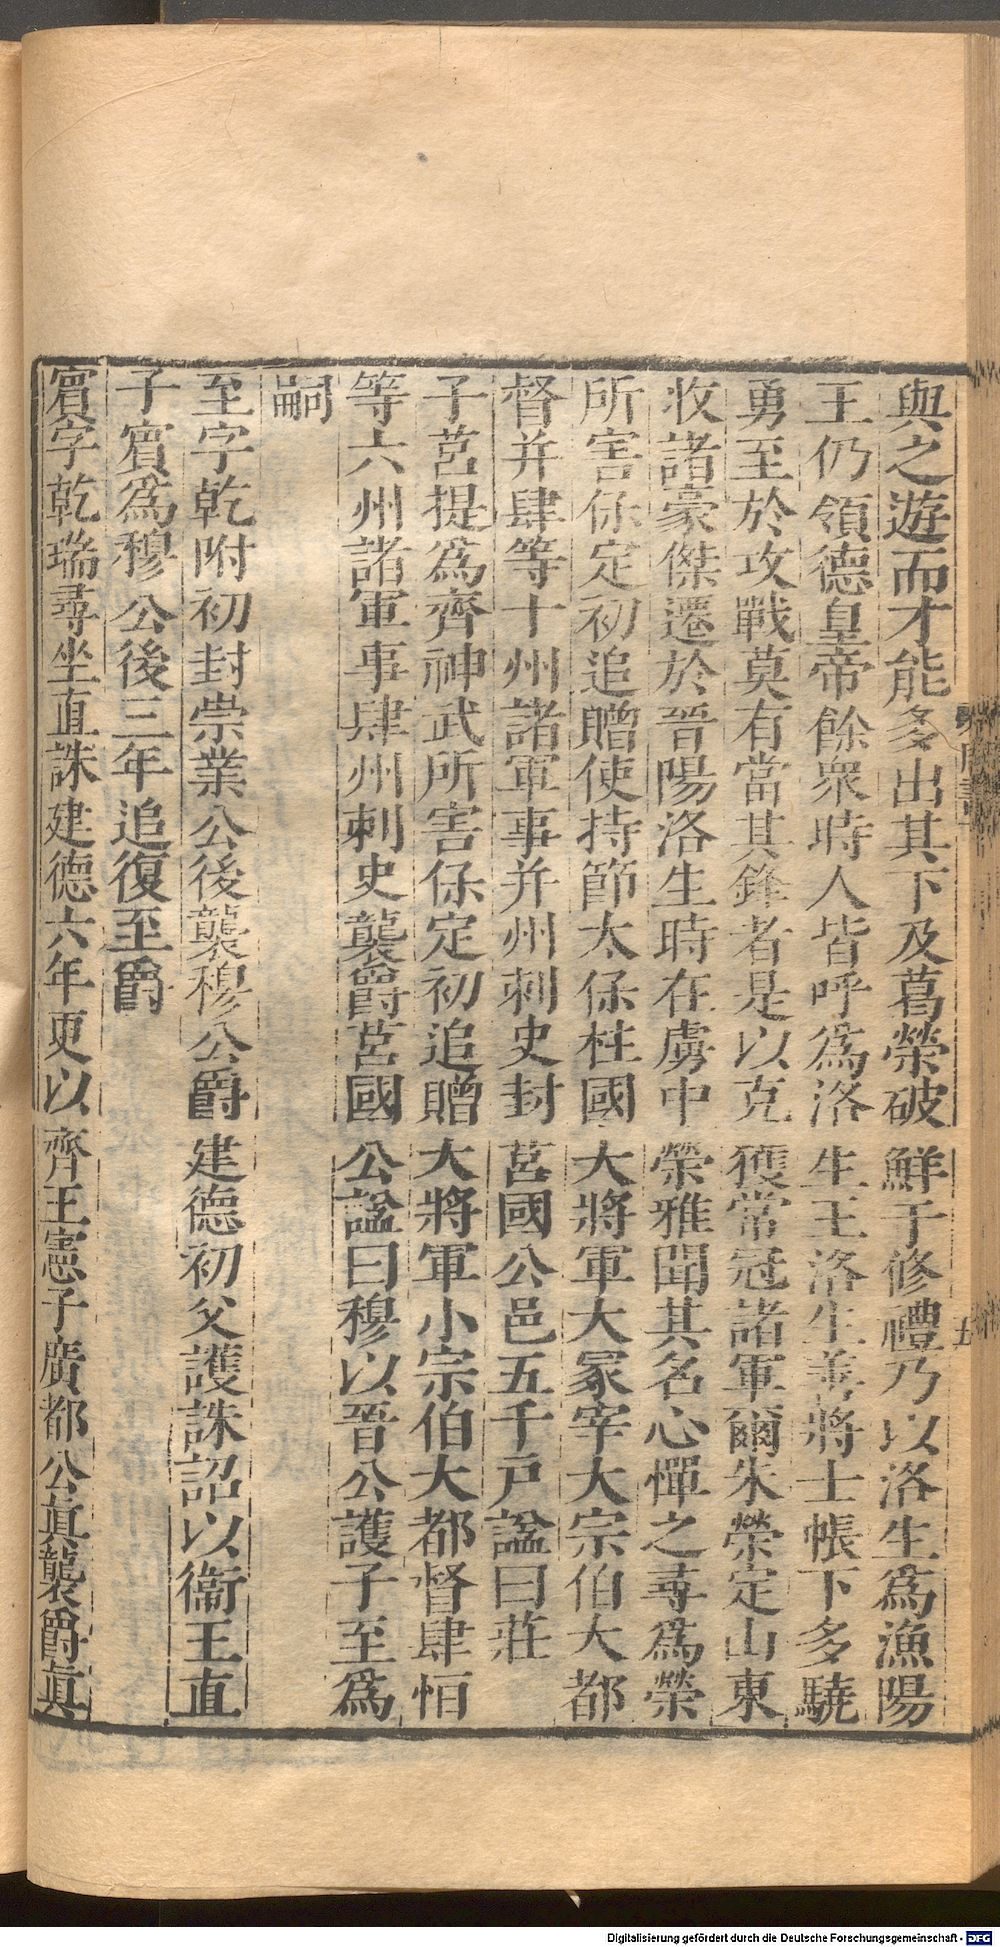 與之遊而才能多出其下及葛榮破鮮于修禮乃以洛生爲漁陽
王仍領德皇帝餘衆時人皆呼爲洛生王洛生善將士帳下多驍
勇至於攻戰莫有當其鋒者是以克獲常冠諸軍爾朱榮定山東
收諸豪傑遷於晉陽洛生時在虜中榮雅聞其名心憚之尋爲榮
所害保定初追贈使持節太保柱國大將軍大冢宰大宗伯大都
督并肆等十州諸軍事并州刺史封莒國公邑五千戸諡曰莊
子莒提爲齊神武所害保定初追贈大將軍小宗伯大都督肆恒
等六州諸軍事肆州刺史襲爵莒國公諡曰穆以晉公護子至爲
嗣
至字乾附初封崇業公後襲穆公爵建德初父護誅詔以衞王直
子賓爲穆公後三年追復至爵
賓字乾瑞尋坐直誅建德六年更以齊王憲子廣都公眞襲爵眞
五
Digitalisierung gefördert durch die Deutsche Forschungsgemeinschaft - DFG